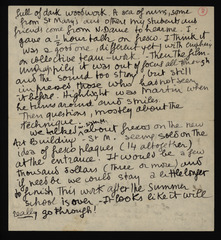 full of dark woodwork & a sea of nuns, some
from St Mary's and other my students and
friends come from N. Dame to learn. I
gave a ½ hour talk, on fresco I think it
was a good one, different yet with emphasis
on collective team-work. Then the film.
Unhappily it was out of focus all through
and the sound too strong, but still
impressed those who hadn't seen
it before. Highlight was Martin when
he turns around and smiles.
Then questions mostly about the
technique.
We talked about frescos on the new
Art Building – St M. seems sold on the
idea of fresco plaques (14 altogether)
at the entrance. It would be a few
thousand dollars (three or more) and
if need be we could stay a little longer
to finish this work after the Summer
school is over. It looks like it will
really go through!